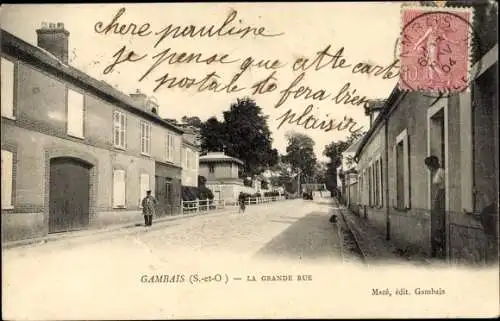 chere pauline
je pense que cette carte
postale te
fera bien
plaisir
GAMBAIS (S.-et-O) — LA GRANDE RUE
Macé, édit. Gambais